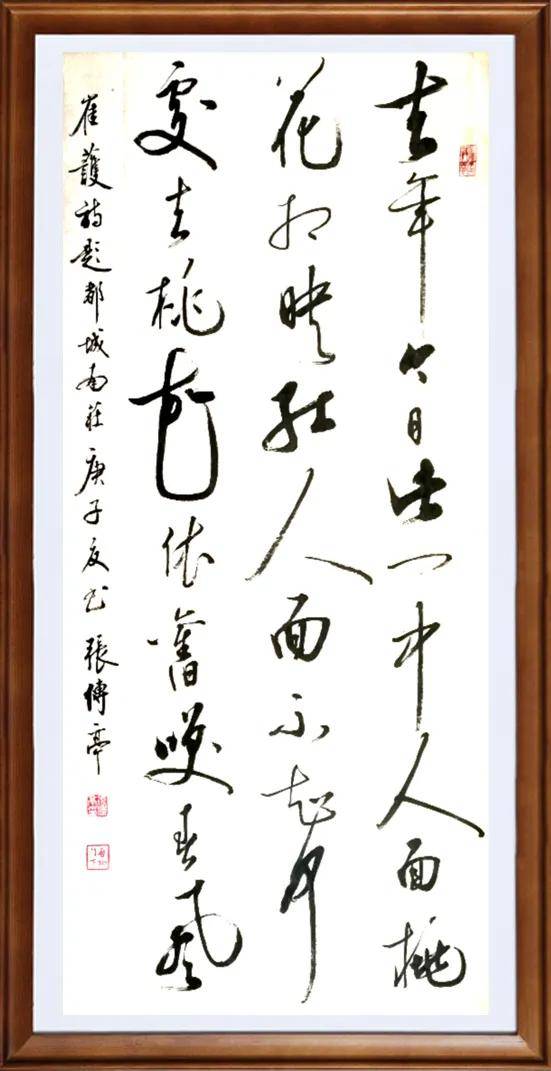 去年今日此門中人面桃
花相映紅人面不知何
處去桃花依舊咲春風
崔護詩題都城南莊庚子夏书張傳亭